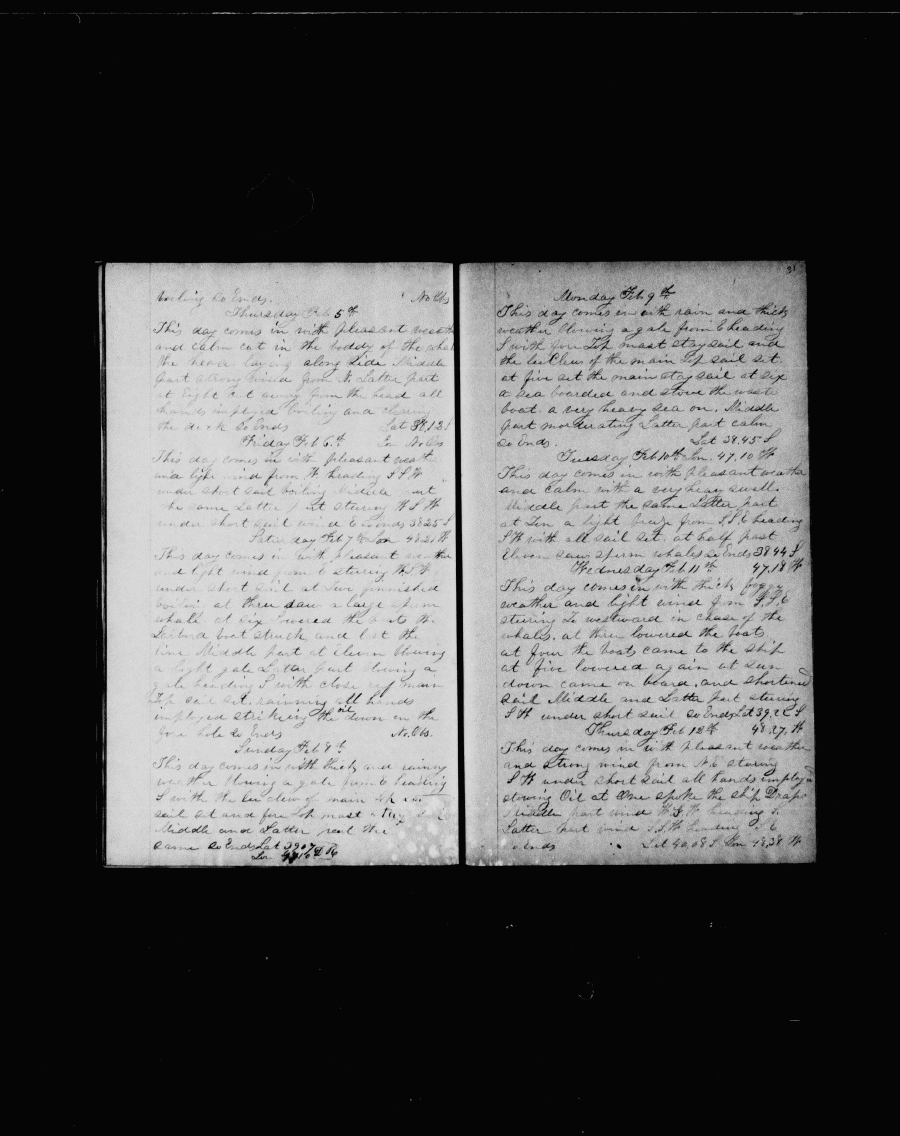 boiling So Ends. No Obs
Thursday Feb 5th
This day comes in with pleasant weath
and calm cut in the boddy of the whal
the head laying along side Middle
part strong wind from N. Latter part
at Eight cut away from the head all
hands imployed boiling and clearing
the deck So Ends Lat 38,12 S
Friday Feb 6th Lon No Obs
This day comes in with pleasant weath
and light wind from W heading S S W
under short sail boiling Middle part
the same Latter part stearing W S W
under short sail wind E So Ends 38 25 S
Saterday Feb 7th Lon 48 21 W
This day comes in with pleasant weather
and light wind from E stearing W S W
under short sail at two finnished
boilin at three saw a large spurm
whale at six lowered the boats the
Larbord boat struck and lost the
line Middle part at Eleven blowing
a light gale Latter part blowing a
gale heading S with close reef main
Top sail set, raining all hands
imployed strikeing the oil down in the
fore hole So Ends No. Obs.
Sunday Feb 8th
This day comes in with thick and rainny
weather blowing a gale from E heading
S with the lee clew of main top
sail set and fore top mast stay
Middle and Latter part the
same So Ends Lat 39 07
Lon
31
Monday Feb 9th
This day comes in with rain and thick
weather blowing a gale from E heading
S with fore Top mast stay sail and
the lee Clew of the main Top sail set
at five set the main stay sail at six
a sea boarded and stove the waste
boat. a very heavy sea on, Middle
part morderating Latter part calm
So Ends. Lat 38.45 S
Tuesday Feb 10th Lon. 47.10 W
This day comes in with pleasant weather
and calm with a very heavy swell.
Middle part the same Latter part
at Ten a light breeze from S S E heading
S W with all sail set, at half past
Eleven saw sperm whales so Ends 38 44 S
Wednesday Feb 11th 47.18 W
This day comes in with thick foggy
weather and light wind from S. S. E
steering To westward in chase of the
whales. at three lowered the boats
at four the boats came to the ship
at five lowered again at sun
down came on board. and shortened
sail Middle and Latter part steering
S W under short sail So Ends Lat 39.22 S
Thursday Feb 12th 48.27. W
This day comes in with pleasant weather
and strong wind from N.E stearing
S W under short sail all hands imployed
stowing Oil at One spoke the ship Draper
Middle part wind W. S. W heading S.
Latter part wind S. S. W heading E
So Ends Lat 40,08 S Lon 48,38 W